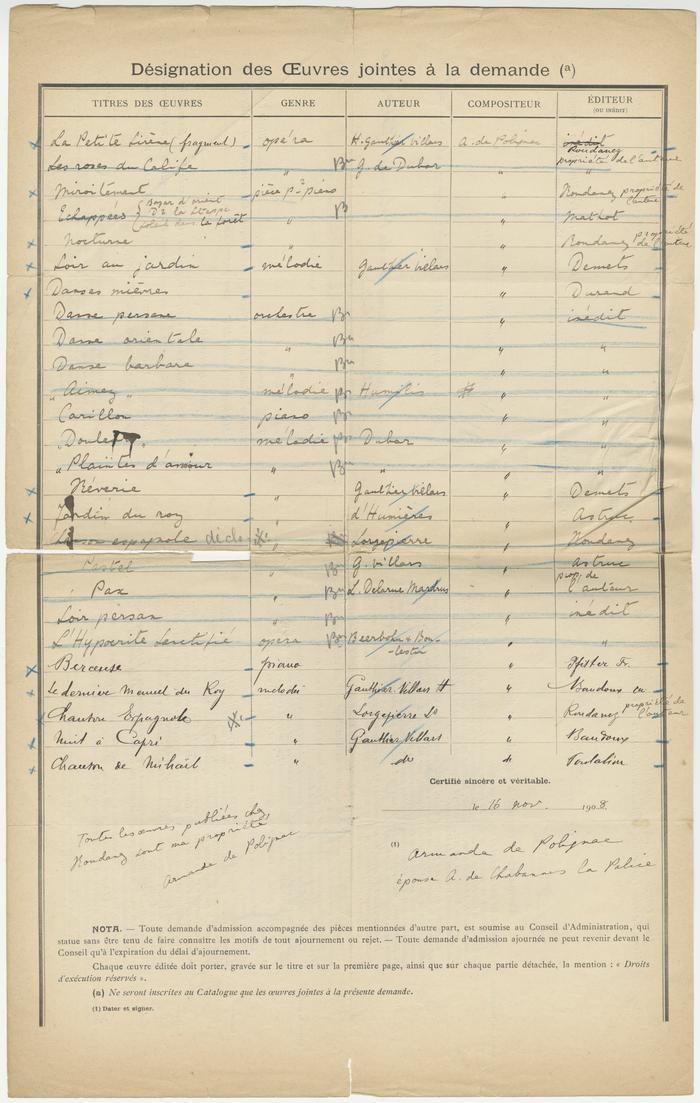 Désignation des Œuvres jointes à la demande (a)
TITRES DES ŒUVRES GENRE AUTEUR COMPOSITEUR ÉDITEUR (OU INÉDIT)
La Petite Sirène (fragment) opéra H. Gauthier Villars A. de Polignac inédit Roudanez
Les roses du Calife " Br G. de Dubor " propriété de l'auteure
Miroitement pièce pr piano Rondanez propriété de l'auteure
Echappées { Bazar d'orient De la Steppe Soleil dans la forêt " B " Mathot
Nocturne " " Rondanez propriété de l'auteure
Soir au jardin mélodie Gauthier Villars " Demets
Danses mièvres " Durand
Danse persane orchestre Br " inédit
Danse orientale " Br " "
Danse barbare " Br " "
"Aimez" mélodie Br Humilis # "
Carillon piano Br " "
Douleur. mélodie Br Dubor " "
"Plaintes d'amour " Br " " "
Rêverie " Gauthier Villars " Demets
Jardin du roy " d'Humières " Astruc
espagnole " Lorgepierre " Rondanez
Pastel " Br G. Villars " Astruc
Pax " Br L. Delarue Mardrus " prop. de l'auteur
Soir persan " Br " inédit
L'Hypocrite Sanctifié opéra Br Beerbohm & Bou-
-lestin " "
Berceuse piano " Pfister Fr.
Le dernier Manuel du Roy mélodie Gauthier Villars H " Baudoux
Chanson Espagnole " Lorgepierre Do " Rondanez propriété de l'auteure
Nuit à Capri " Gauthier Villars " Baudoux
Chanson de Mihaïl " do do
Certifié sincère et véritable.
le 16 nov. 1908.
Toutes les œuvres publiées chez
Rondanez sont ma propriété,
Armande de Polignac
(1) Armande de Polignac
épouse A. de Chabannes La Palice
NOTA. — Toute demande d'admission accompagnée des pièces mentionnées d'autre part, est soumise au Conseil d'Administration, qui
statue sans être tenu de faire connaître les motifs de tout ajournement ou rejet. — Toute demande d'admission ajournée ne peut revenir devant le
Conseil qu'à l'expiration du délai d'ajournement.
Chaque œuvre éditée doit porter, gravée sur le titre et sur la première page, ainsi que sur chaque partie détachée, la mention : « Droits
d'exécution réservés ».
(a) Ne seront inscrites au Catalogue que les œuvres jointes à la présente demande.
(1) Dater et signer.